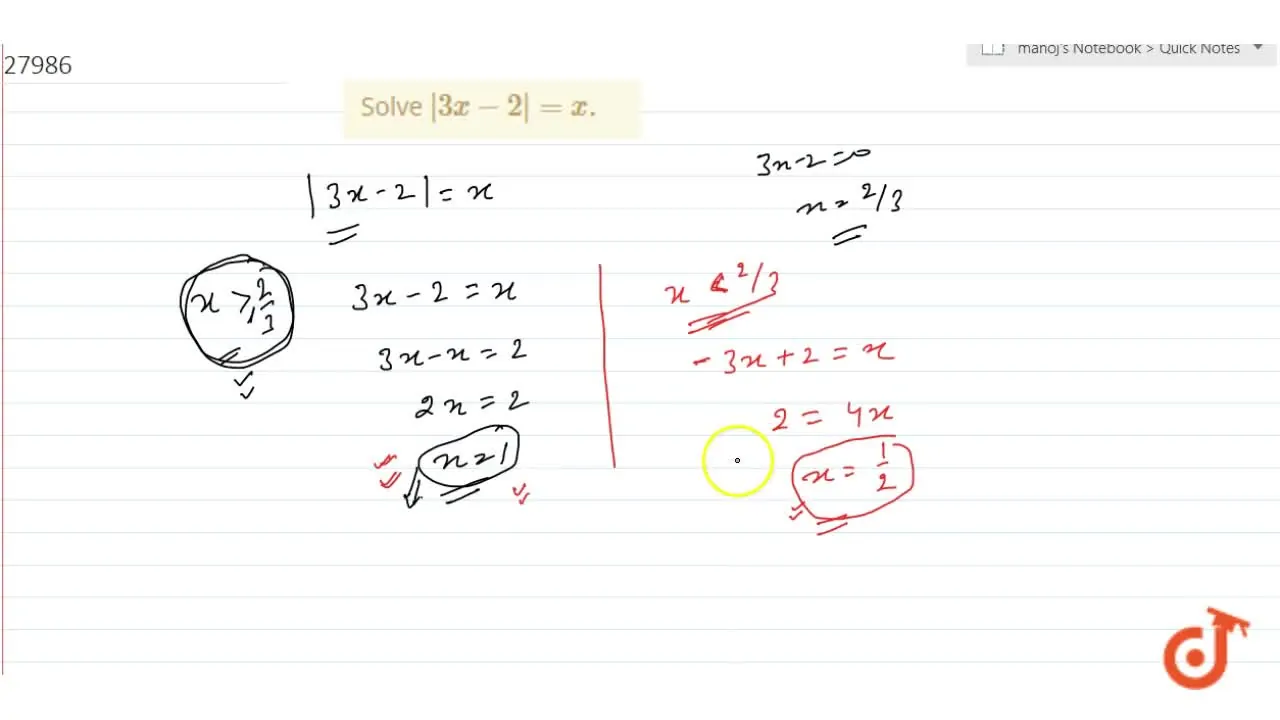 manoj's Notebook > Quick Notes
27986
Solve |3x − 2| = x.
3x-2=0
x = 2/3
|3x-2| = x
x ≥ 2/3
3x - 2 = x
3x-x = 2
2x = 2
x = 1
x < 2/3
- 3x + 2 = x
2 = 4x
x = 1/2